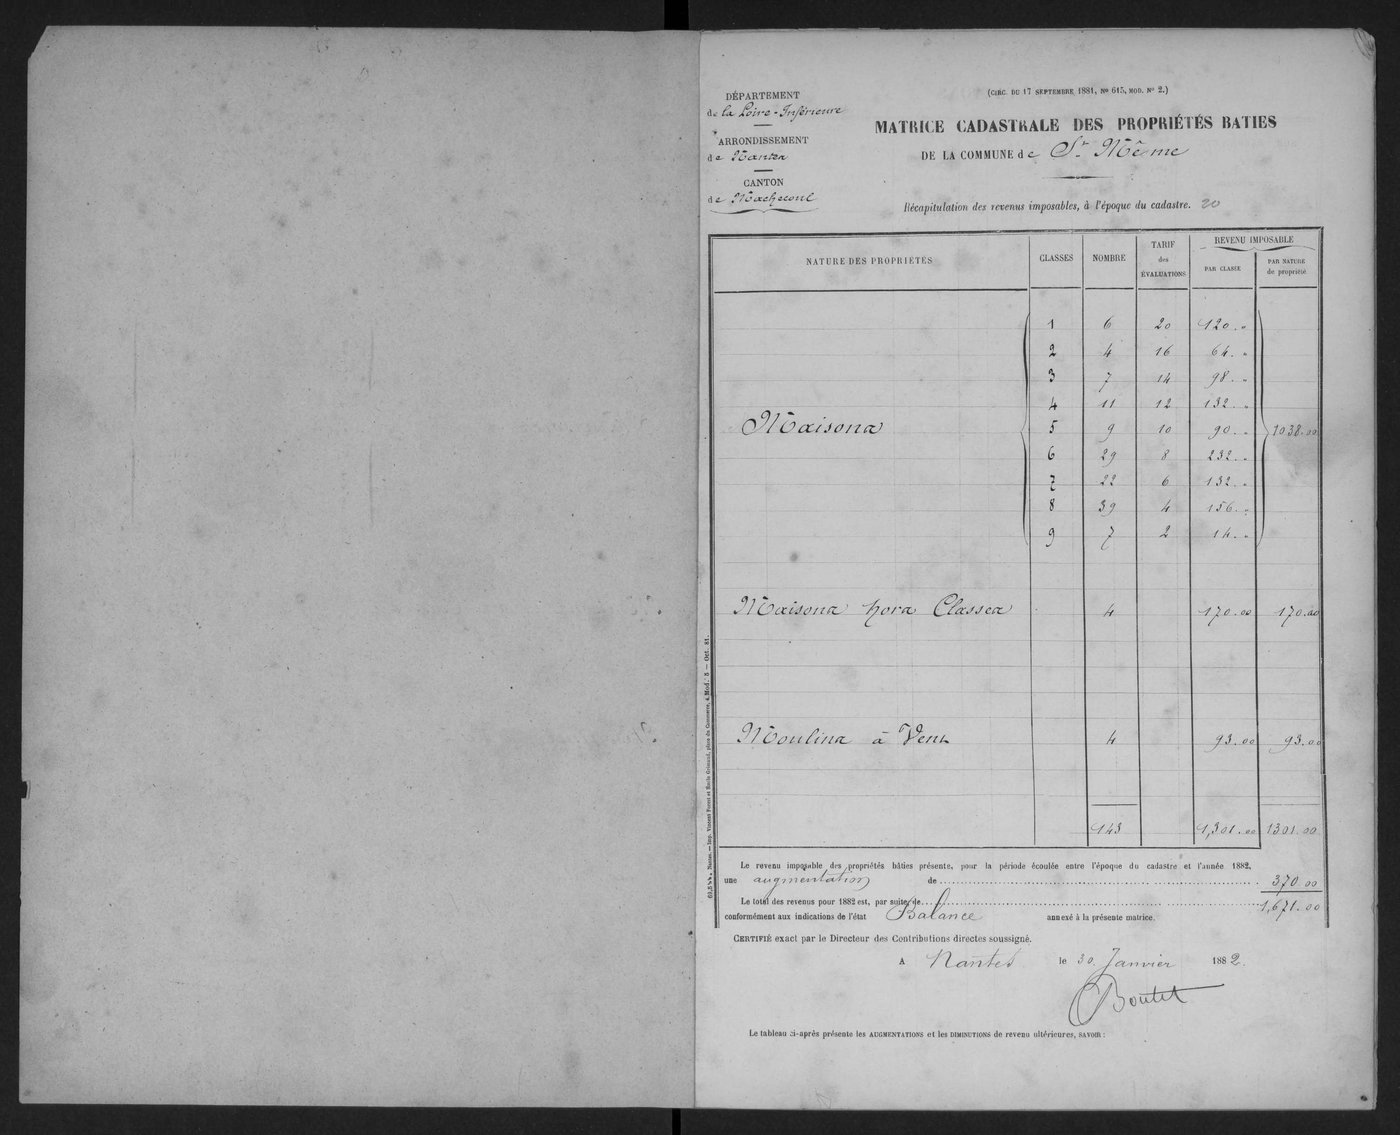 DÉPARTEMENT
de la Loire-Inférieure
ARRONDISSEMENT
de Nantes
CANTON
de Machecoul
(CIRC. DU 17 SEPTEMBRE 1881, No 615, MOD. No 2.)
MATRICE CADASTRALE DES PROPRIÉTÉS BATIES
DE LA COMMUNE de St. Même
Récapitulation des revenus imposables, à l'époque du cadastre. 20
NATURE DES PROPRIÉTÉS CLASSES NOMBRE TARIF des ÉVALUATIONS REVENU IMPOSABLE
PAR CLASSE PAR NATURE de propriété
1 6 20 120. "
2 4 16 64. "
3 7 14 98. "
4 11 12 132. "
Maisons 5 9 10 90. " 1038.00
6 29 8 232. "
7 22 6 132. "
8 39 4 156. "
9 7 2 14. "
Maisons hors Classes 4 170.00 170.00
Moulins à Vent 4 93.00 93.00
143 1,301.00 1301.00
Le revenu imposable des propriétés bâties présente, pour la période écoulée entre l'époque du cadastre et l'année 1882,
une augmentation de 370.00
Le total des revenus pour 1882 est, par suite, de 1,671.00
conformément aux indications de l'état Balance annexé à la présente matrice.
CERTIFIÉ exact par le Directeur des Contributions directes soussigné.
A Nantes le 30 Janvier 1882.
Boutet
Le tableau ci-après présente les AUGMENTATIONS et les DIMINUTIONS de revenu ultérieures, SAVOIR :
Nantes. — Imp. Vincent Forest et Émile Grimaud, place du Commerce, 4. Mod. 5 — Oct. 81.